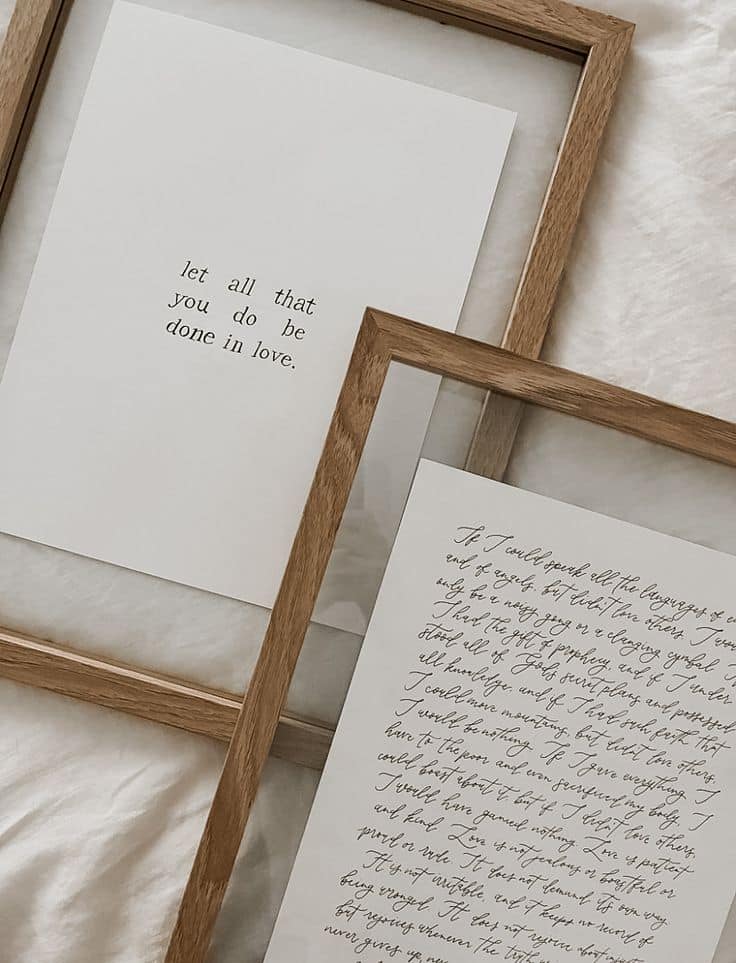 let all that
you do be
done in love.
If I could speak all the languages of
and of angels, but didn't love others, I
only be a noisy gong or a clanging cymbal. If
I had the gift of prophecy, and if I under
stood all of God's secret plans and possessed
all knowledge, and if I had such faith that
I could move mountains, but didn't love others,
I would be nothing. If I gave everything I
have to the poor and even sacrificed my body, I
could boast about it; but if I didn't love others,
I would have gained nothing. Love is patient
and kind. Love is not jealous or boastful or
proud or rude. It does not demand its own way.
It is not irritable, and it keeps no record of
being wronged. It does not rejoice about
but rejoices whenever the truth
never gives up,